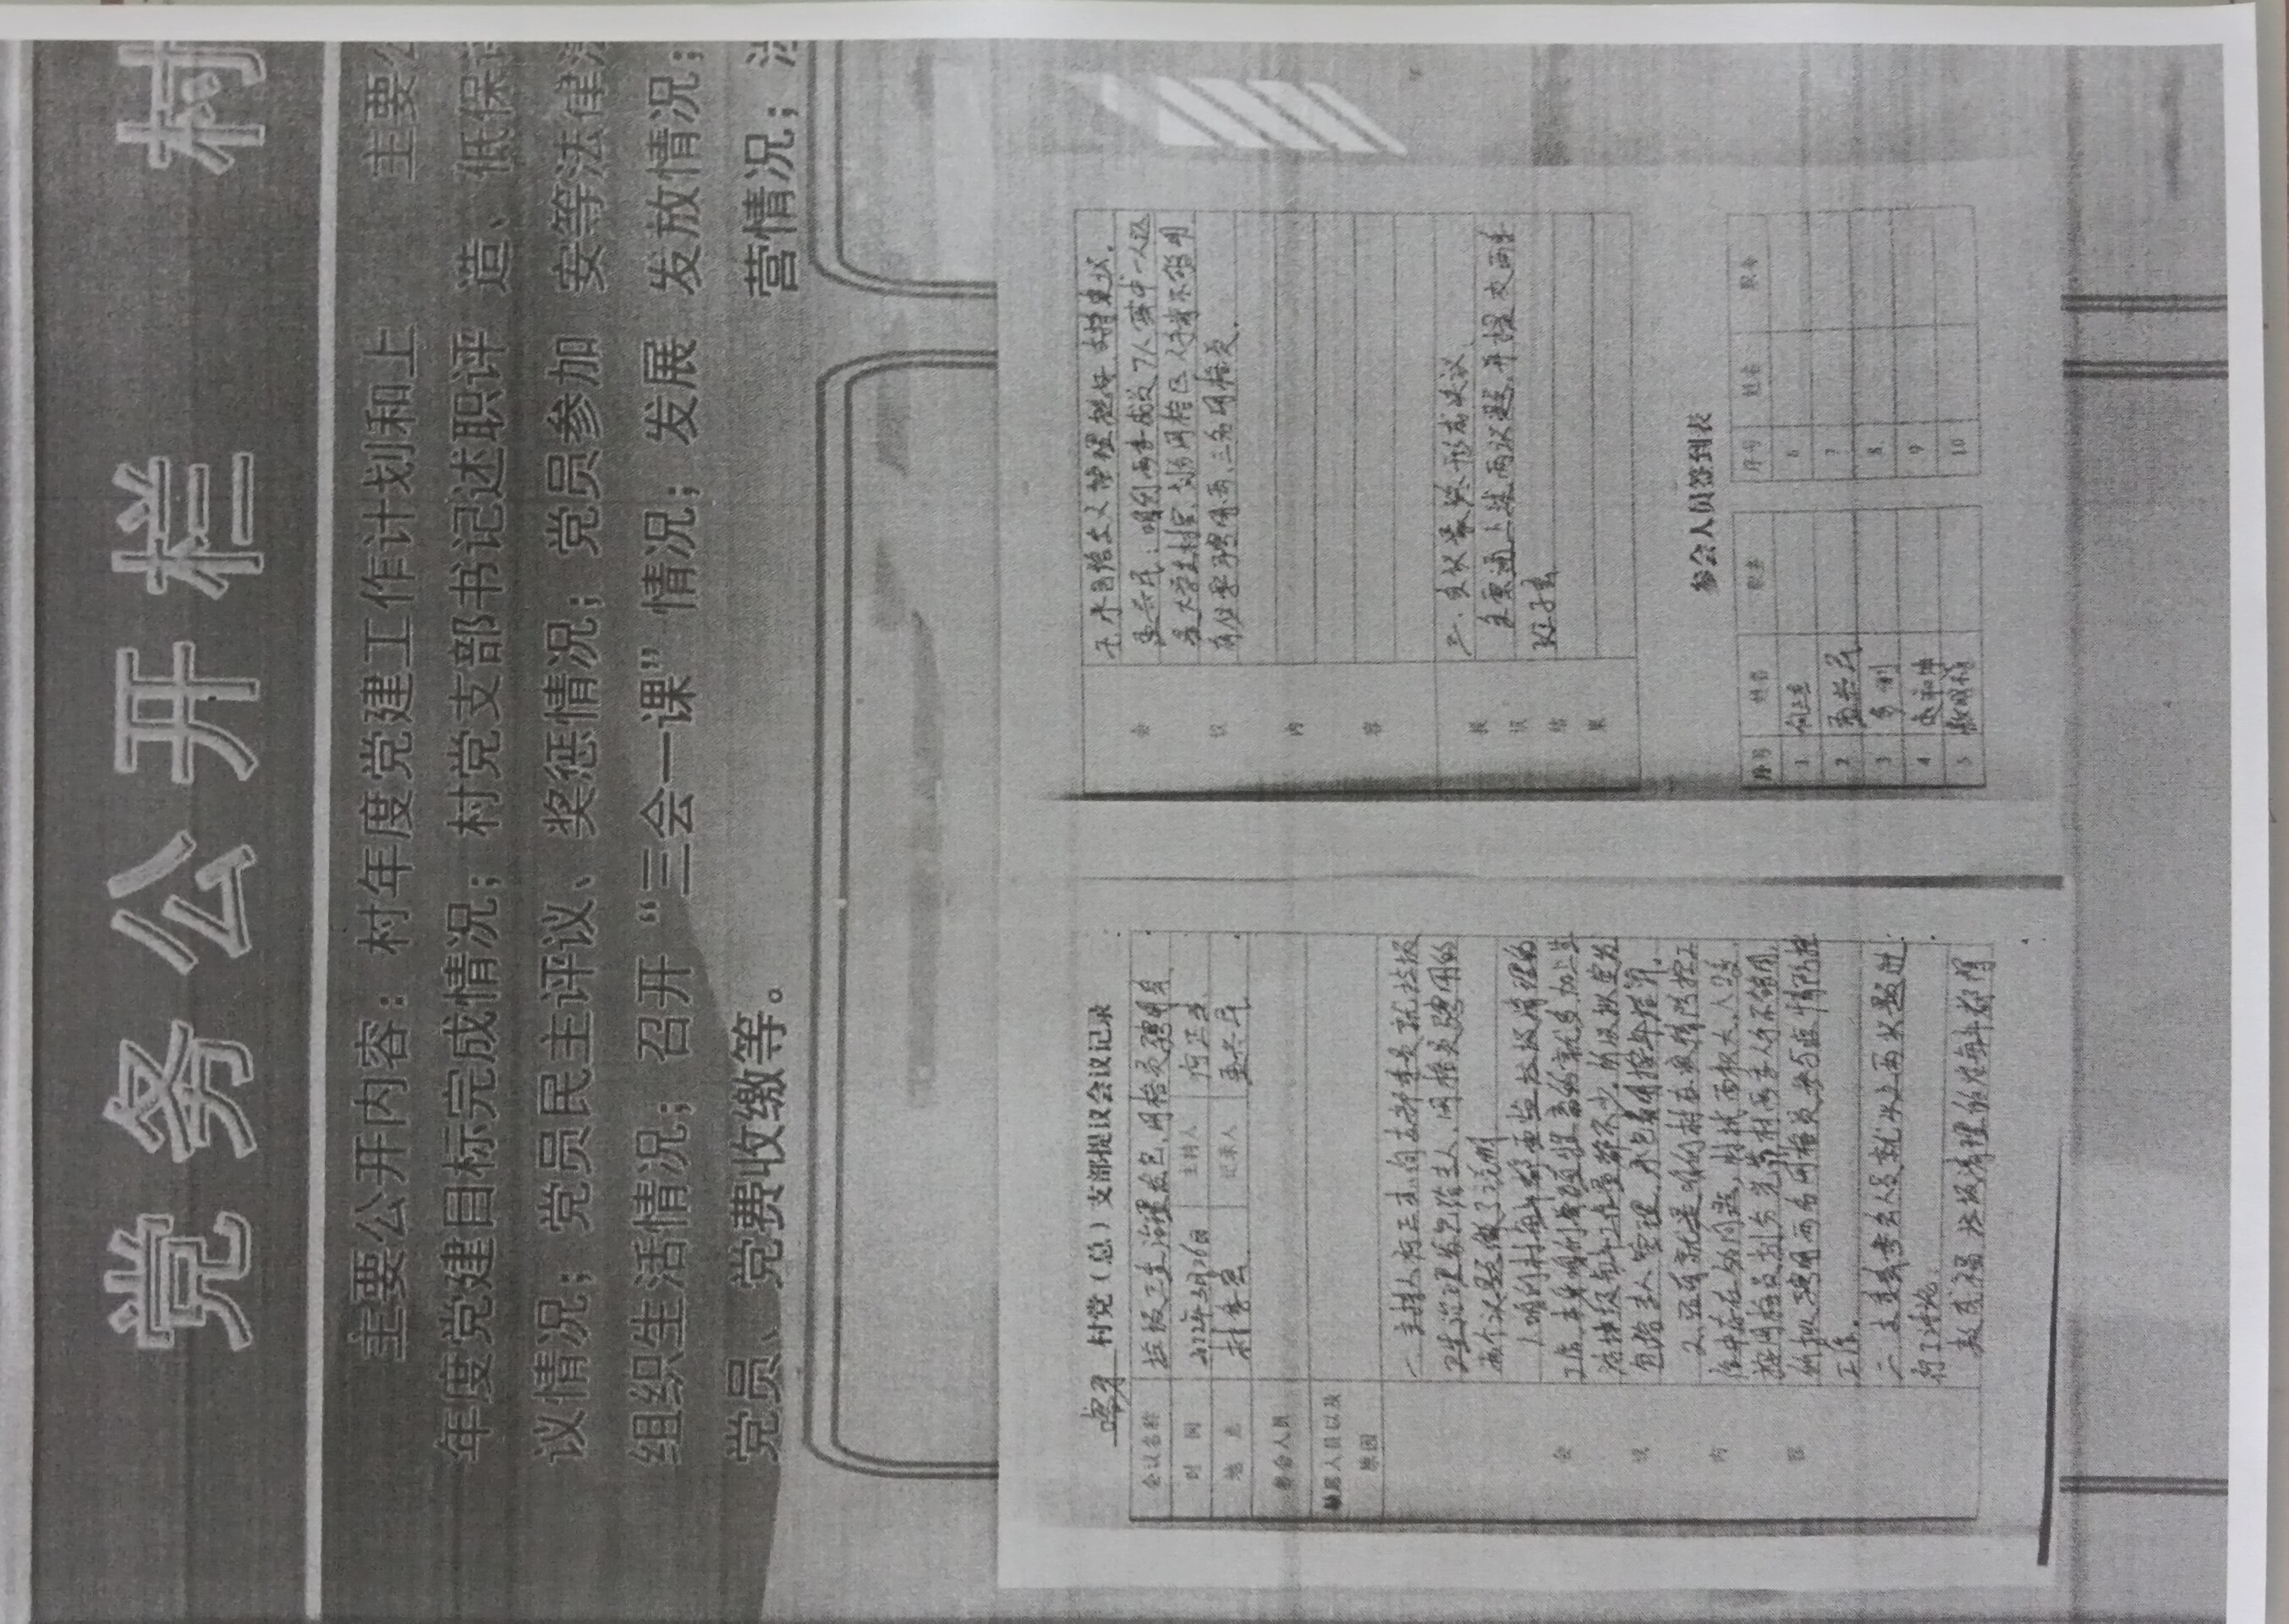 党务公开栏
村
主要公开内容：村年度党建工作计划和上
年度党建目标完成情况；村党支部书记述职评
议情况；党员民主评议、奖惩情况；党员参加
组织生活情况；召开“三会一课”情况；发展
党员、党费收缴等。
主要公
造、低保
安等法律
发放情况；
营情况；
村党（总）支部提议会议记录
会议名称 垃圾卫生治理发包、网格员聘用
时间 2022年3月26日 主持人 何正
地点 村委会 记录人 兴民
参会人员
缺席人员以及
原因
会议内容
一、主持人何正 向支部委员就垃圾
卫生治理发包给 人、网格员聘用的
两个议题做了说明
1、咱们村每年都 垃圾清理的
工作，本身咱们 牲畜的就多，加上生
活垃圾每年工作量都不少，所以拟定发
包给 人管理，承包费用按年结算。
2、还有就是咱们村在疫情防控工
作中存在的问题，村域面积大，人 ，
按网格员划分光靠村两委人手不够用，
所拟聘用两名网格员参与疫情防控
工作。
二、支委会参会人员就以上两议题进
行了讨论。
成福 垃圾清理的 每年都得
会议内容
管理挺好，支持 。
兴民：咱们两委成员7人 中一人还
是大学生村官，划分网格区人手 不够用
有必要聘用 三名网格员。
提议结果
三、会议最终形成决议、
通 上述两议题，并提交两委
班子会
参会人员签到表
序号 姓名 职务 序号 姓名 职务
1 何正 6
2 兴民 7
3 8
4 9
5 10